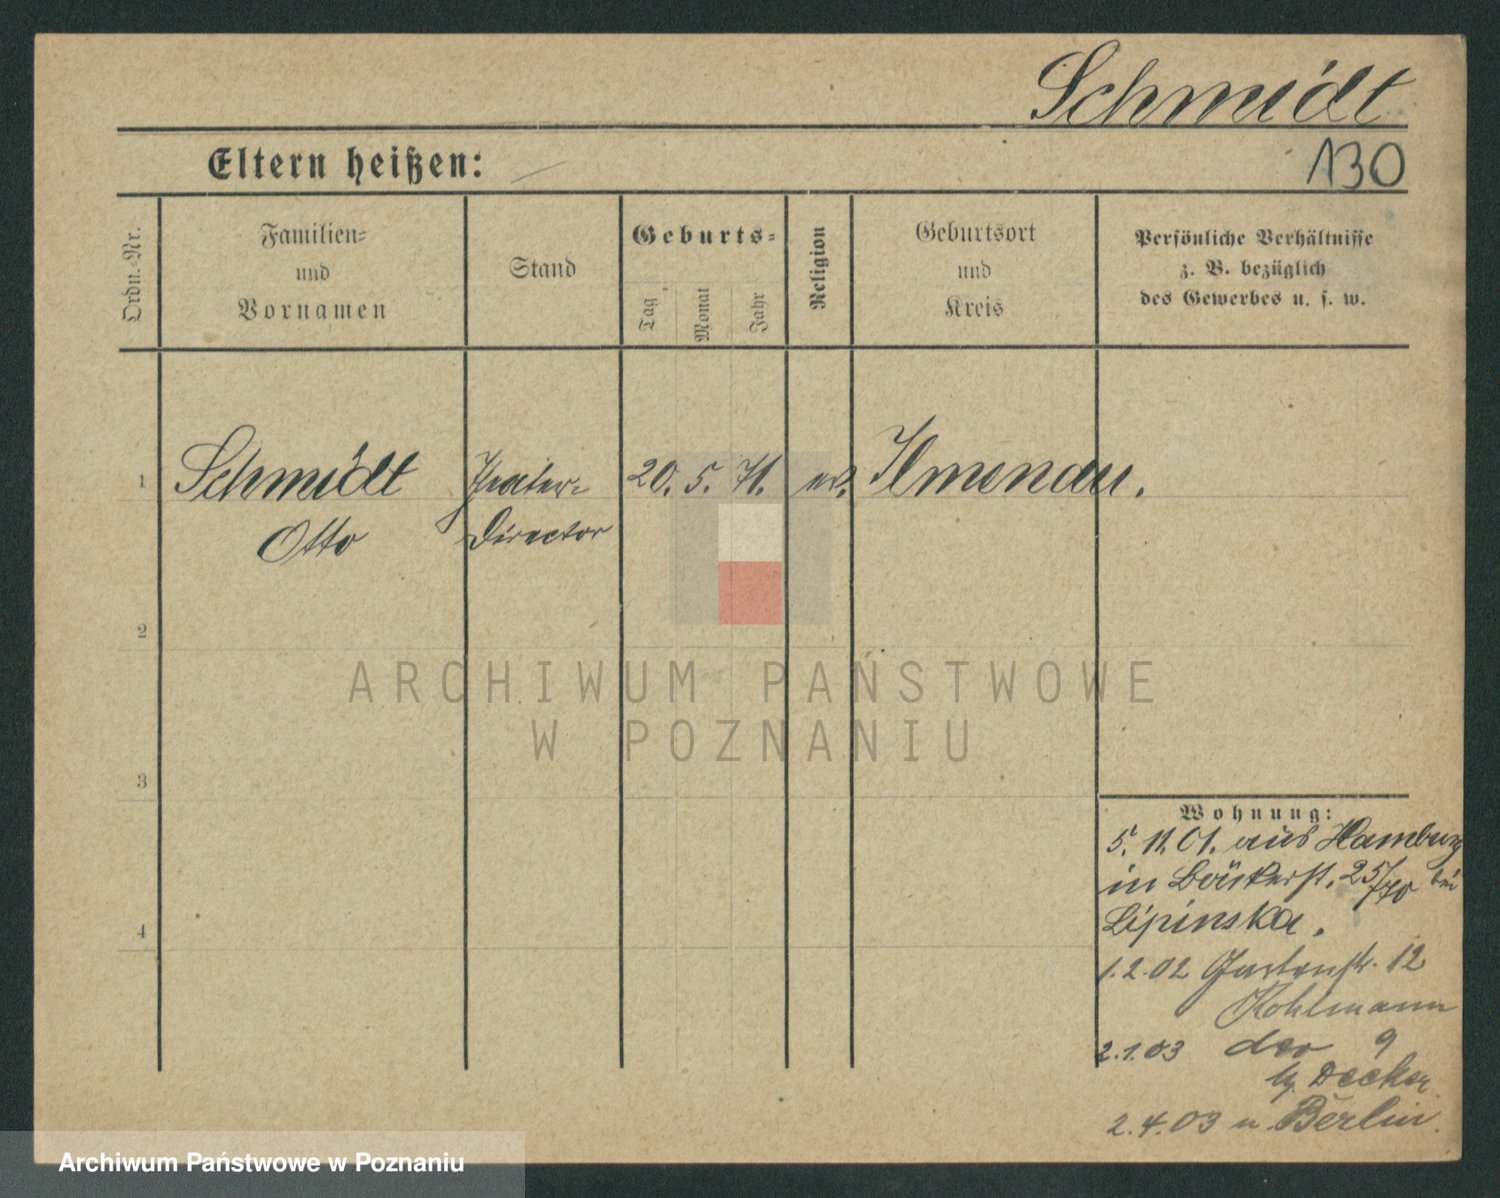 Schmidt
Eltern heißen:
130
Ordn.-Nr.
Familien-
und
Vornamen
Stand
Geburts-
Tag
Monat
Jahr
Religion
Geburtsort
und
Kreis
Persönliche Verhältnisse
z. B. bezüglich
des Gewerbes u. s. w.
1
Schmidt Theater- 20. 5. 71. ev. Ilmenau.
Otto Director
2
3
4
Wohnung:
5. 11. 01. aus Hamburg
in Bäckerst. 25/70 bei
Lipinska.
1. 2. 02 Gartenstr. 12
Kohlmann
2. 1. 03 dto 9
Decker
2. 4. 03 n Berlin.
ARCHIWUM PAŃSTWOWE
W POZNANIU
Archiwum Państwowe w Poznaniu